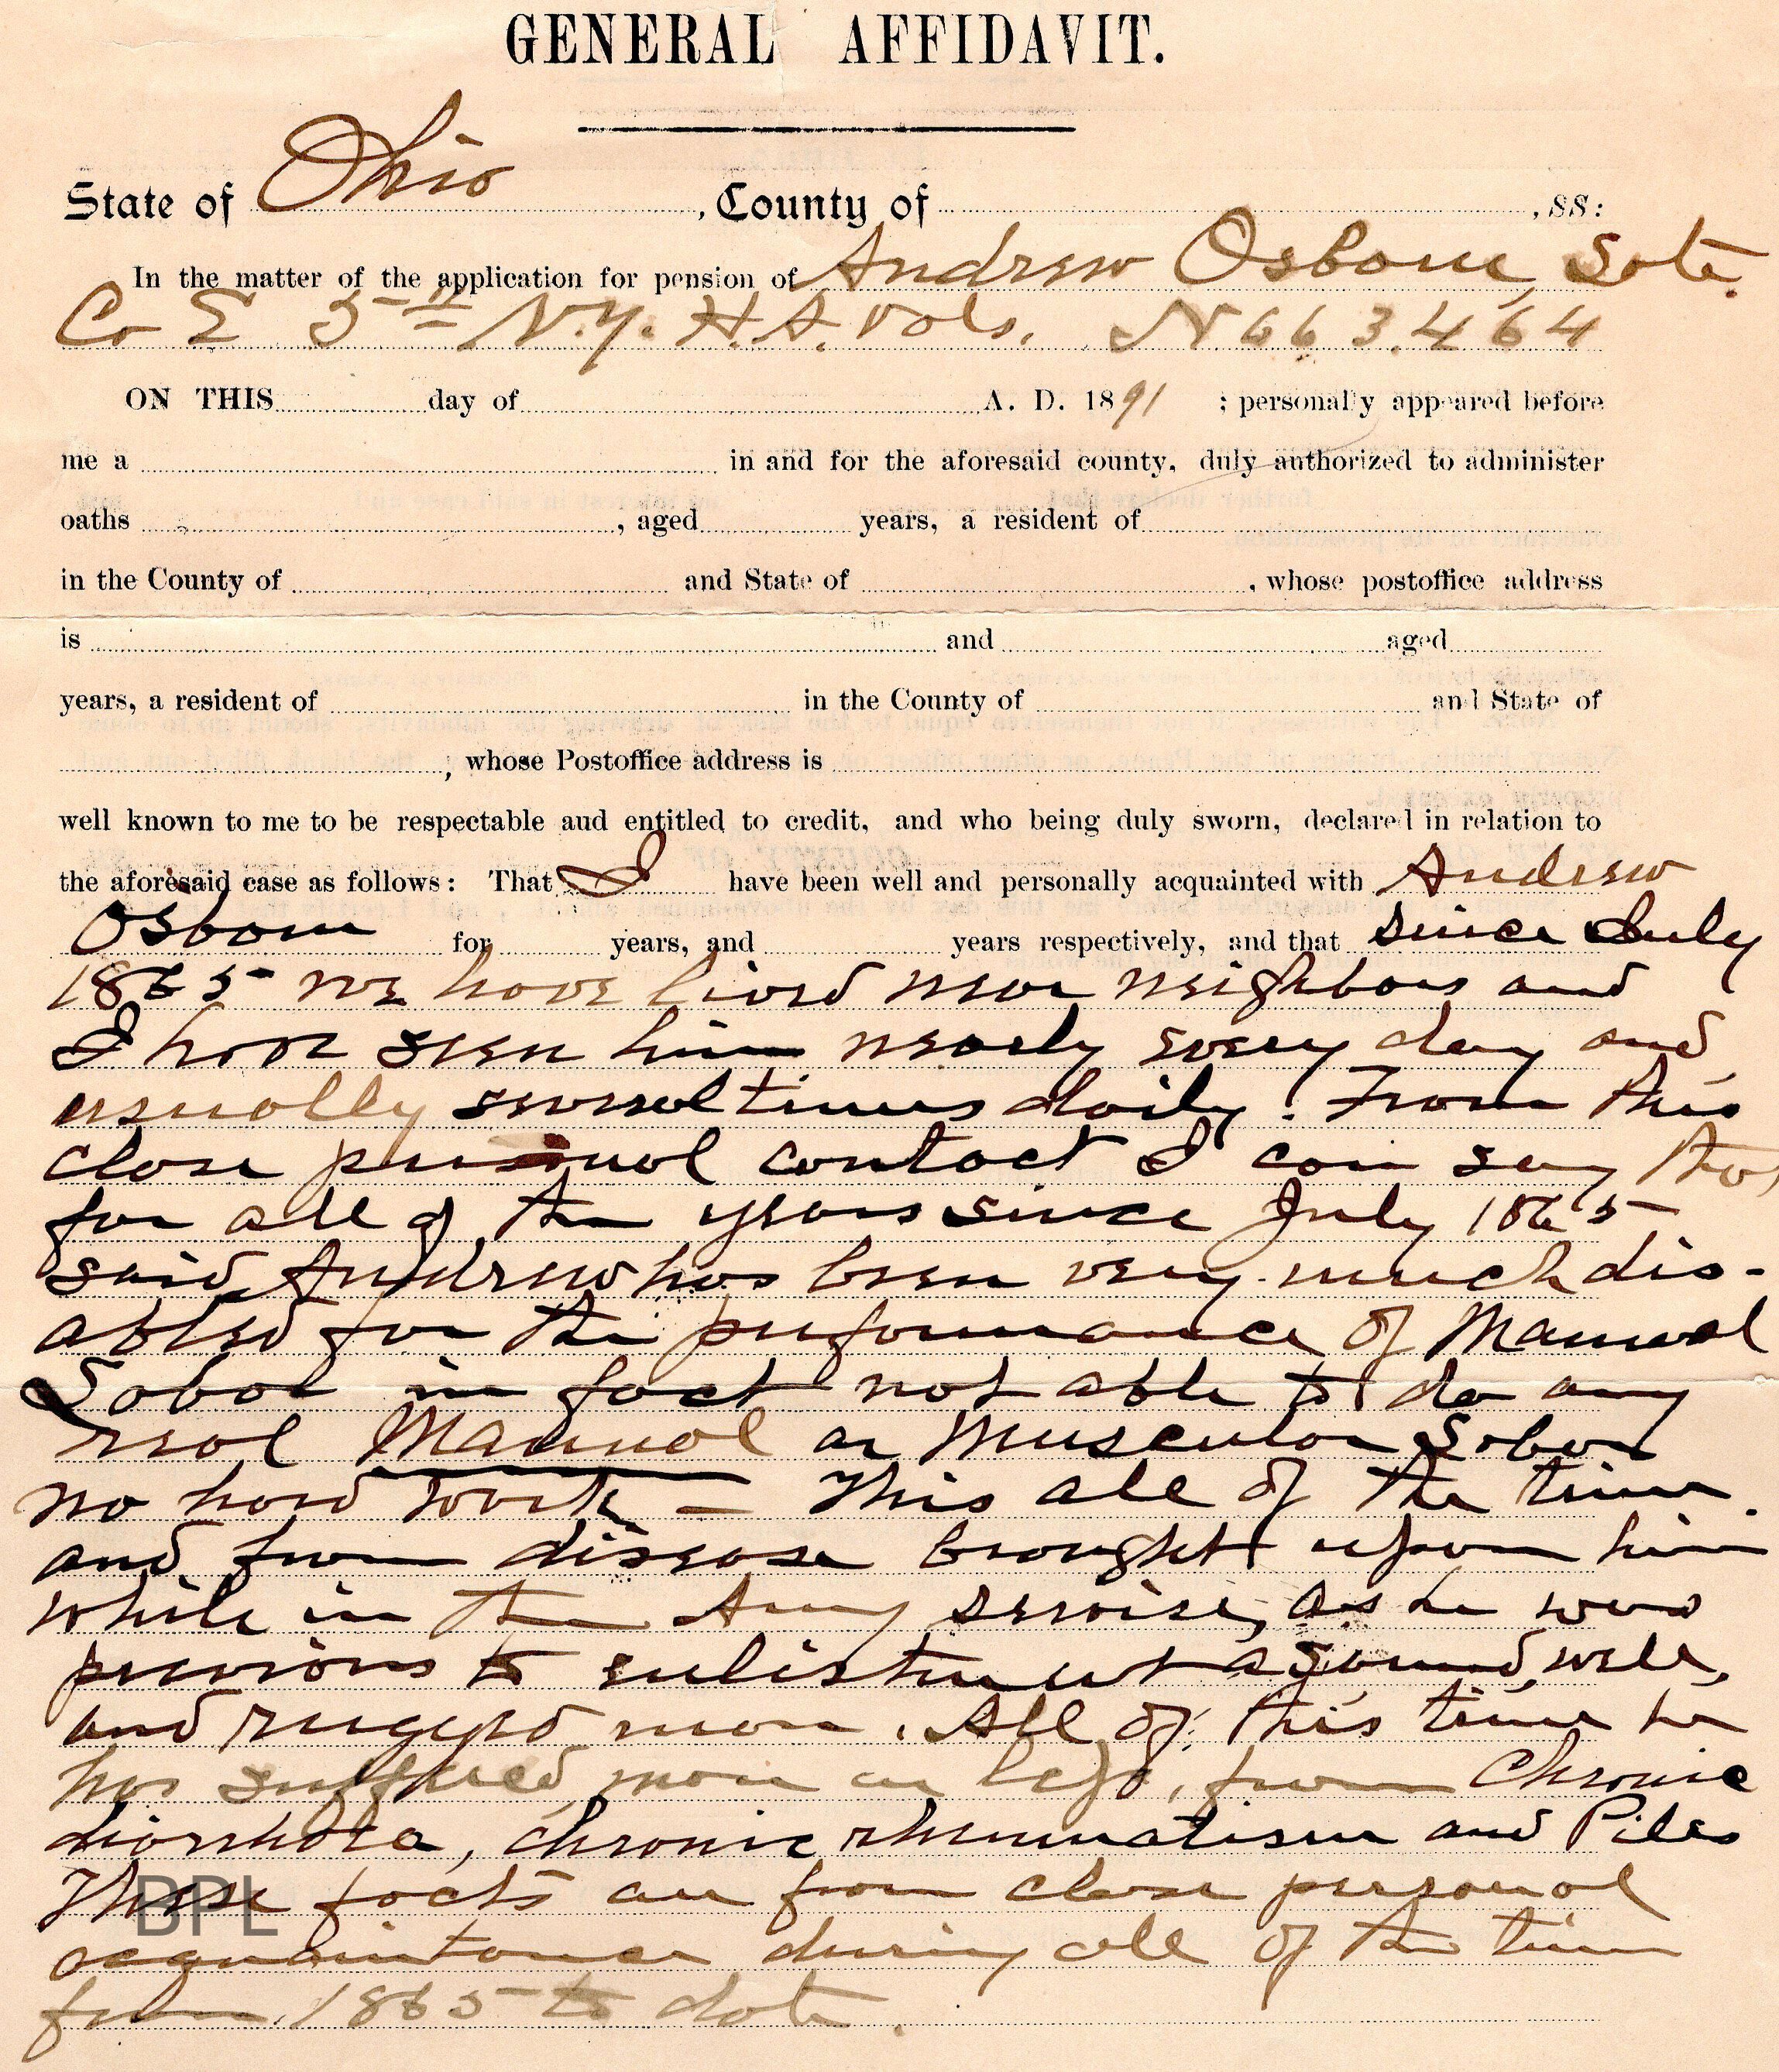 GENERAL AFFIDAVIT.
State of Ohio, County of , SS:
In the matter of the application for pension of Andrew Osborn, late
Co E 5th N.Y. H.A. Vols. No 663.464
ON THIS day of A. D. 1891 ; personally appeared before
me a in and for the aforesaid county, duly authorized to administer
oaths , aged years, a resident of
in the County of and State of , whose postoffice address
is and aged
years, a resident of in the County of and State of
; whose Postoffice address is
well known to me to be respectable and entitled to credit, and who being duly sworn, declared in relation to
the aforesaid case as follows: That I have been well and personally acquainted with Andrew
Osborn for years, and years respectively, and that since July
1865 we have lived near neighbors and
I have seen him nearly every day and
usually several times daily. From this
close personal contact I can say that
for all of the years since July 1865
said Andrew has been very much dis-
abled for the performance of Manual
Labor in fact not able to do any
real Manual or Muscular Labor
no hard work — This all of the time.
and from disease brought upon him
while in the Army servise, as he was
previous to enlistment a sound, well,
and rugged man. All of this time he
has suffered, more or less, from Chronic
diorrhoea, chronic rhenmatism and Piles
These facts are from close personal
acquaintance during all of the time
from 1865 to date.
BPL